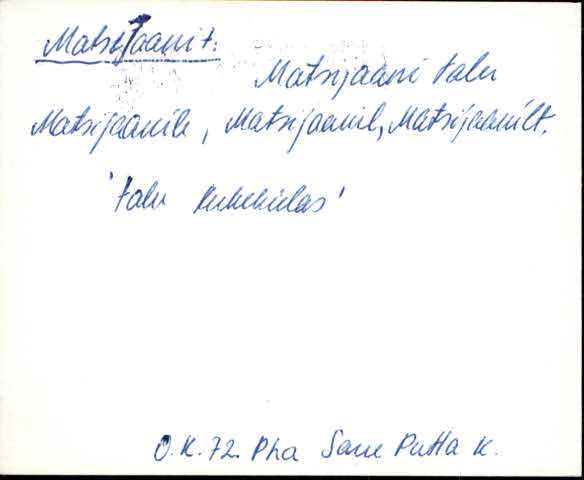 MatsiJaani t.
Matsijaani talu
Matsijaanile, Matsijaanil, Matsijaanilt.
'talu Kukekülas'
O.K. 72. Pha Saue Putla k.